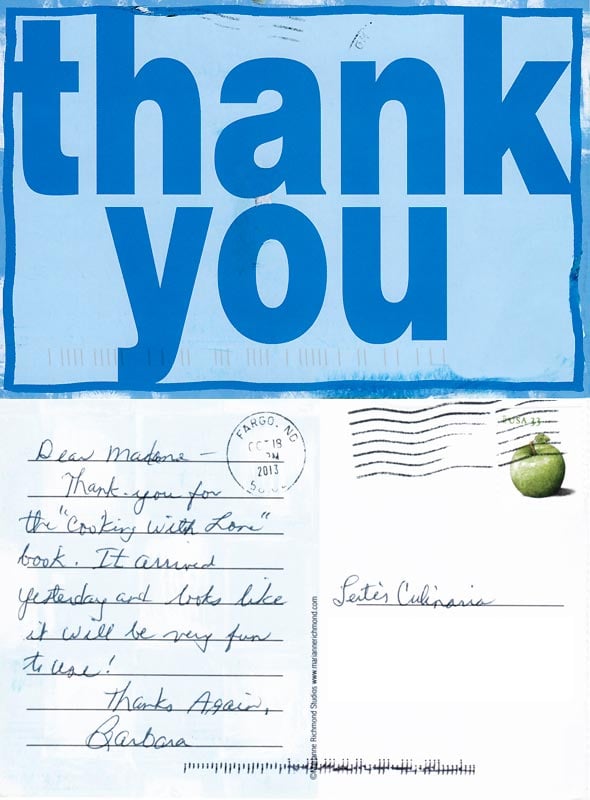 thank
you
FARGO, ND
OCT 18
PM
2013
USA 33
Dear Madame –
Thank you for
the "Cooking With Love"
book. It arrived
yesterday and looks like
it will be very fun
to use!
Thanks Again,
Barbara
Leite's Culinaria
©Marianne Richmond Studios www.mariannerichmond.com